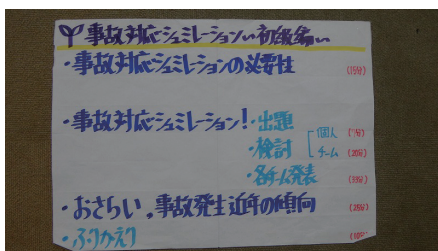 事故対応シュミレーション〃初級編〃
・事故対応シュミレーションの必要性 (15分)
・事故対応シュミレーション!・出題
・検討 個人
チーム (20分)
・各チーム発表
・おさらい。事故発生近年の傾向 (25分)
・ふりかえり